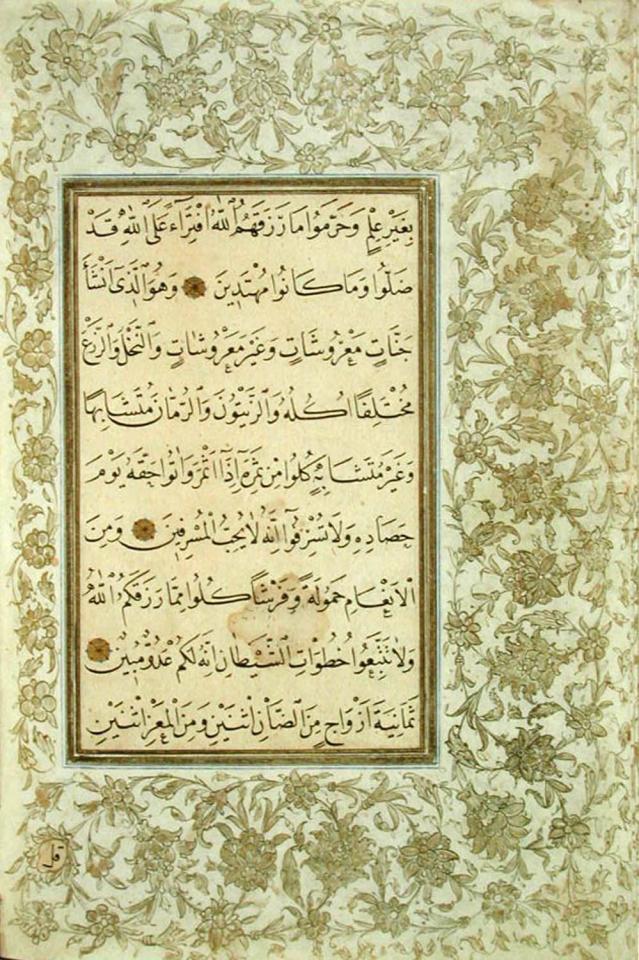 بِغَيْرِ عِلْمٍ وَحَرَّمُوا مَا رَزَقَهُمُ اللّٰهُ افْتِرَاءً عَلَى اللّٰهِ قَدْ
ضَلُّوا وَمَا كَانُوا مُهْتَدِينَ وَهُوَ الَّذِى اَنْشَأَ
جَنَّاتٍ مَعْرُوشَاتٍ وَغَيْرَ مَعْرُوشَاتٍ وَالنَّخْلَ وَالزَّرْعَ
مُخْتَلِفًا اُكُلُهُ وَالزَّيْتُونَ وَالرُّمَّانَ مُتَشَابِهًا
وَغَيْرَ مُتَشَابِهٍ كُلُوا مِنْ ثَمَرِهِ اِذَا اَثْمَرَ وَاٰتُوا حَقَّهُ يَوْمَ
حَصَادِهِ وَلَا تُسْرِفُوا اِنَّهُ لَا يُحِبُّ الْمُسْرِفِينَ وَمِنَ
الْاَنْعَامِ حَمُولَةً وَفَرْشًا كُلُوا مِمَّا رَزَقَكُمُ اللّٰهُ
وَلَا تَتَّبِعُوا خُطُوَاتِ الشَّيْطَانِ اِنَّهُ لَكُمْ عَدُوٌّ مُبِينٌ
ثَمَانِيَةَ اَزْوَاجٍ مِنَ الضَّاْنِ اثْنَيْنِ وَمِنَ الْمَعْزِ اثْنَيْنِ
قل